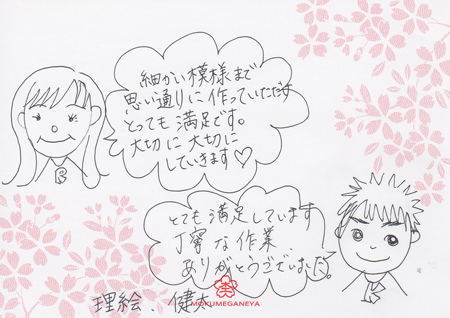 細かい模様まで
思い通りに作っていただけ
とっても満足です。
大切に大切に
していきます♡
R
とても満足しています
丁寧な作業、
ありがとうございました。
K
理絵、健太
杢
MOKUMEGANEYA